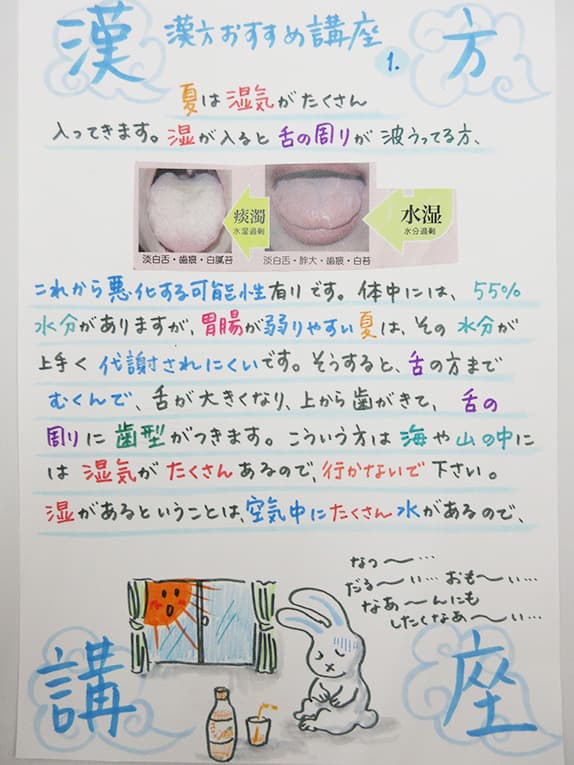 漢
漢方おすすめ講座
1.
方
夏は湿気がたくさん
入ってきます。湿が入ると舌の周りが波うってる方、
痰濁
水湿過剰
水湿
水分過剰
淡白舌・歯痕・白膩苔
淡白舌・胖大・歯痕・白苔
これから悪化する可能性有りです。体中には、55%
水分がありますが、胃腸が弱りやすい夏は、その水分が
上手く代謝されにくいです。そうすると、舌の方まで
むくんで、舌が大きくなり、上から歯がきて、舌の
周りに歯型がつきます。こういう方は海や山の中に
は湿気がたくさんあるので、行かないで下さい。
湿があるということは、空気中にたくさん水があるので、
なっ〜…
だる〜い…おも〜い…
なあ〜んにも
したくなあ〜い…
講
座